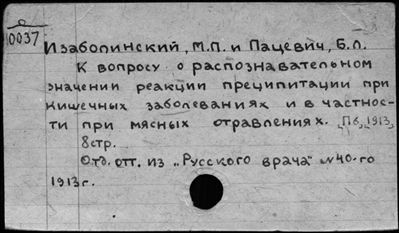 о
10037
Изаболинский, М.П. и Пацевич, Б.Л.
К вопросу о распознавательном
значении реакции преципитации при
кишечных заболеваниях и в частнос-
ти при мясных отравлениях. Пб, 1913,
8стр.
Отд. отт. из „Русского врача" №40-го
1913г.